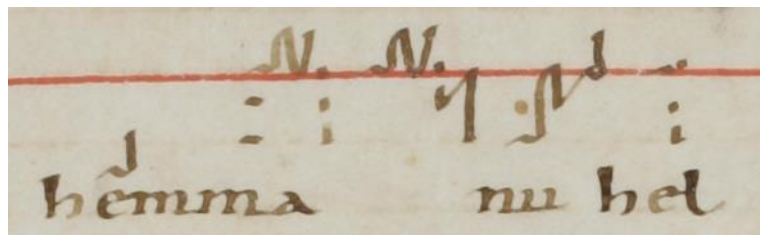 hemma nu hel